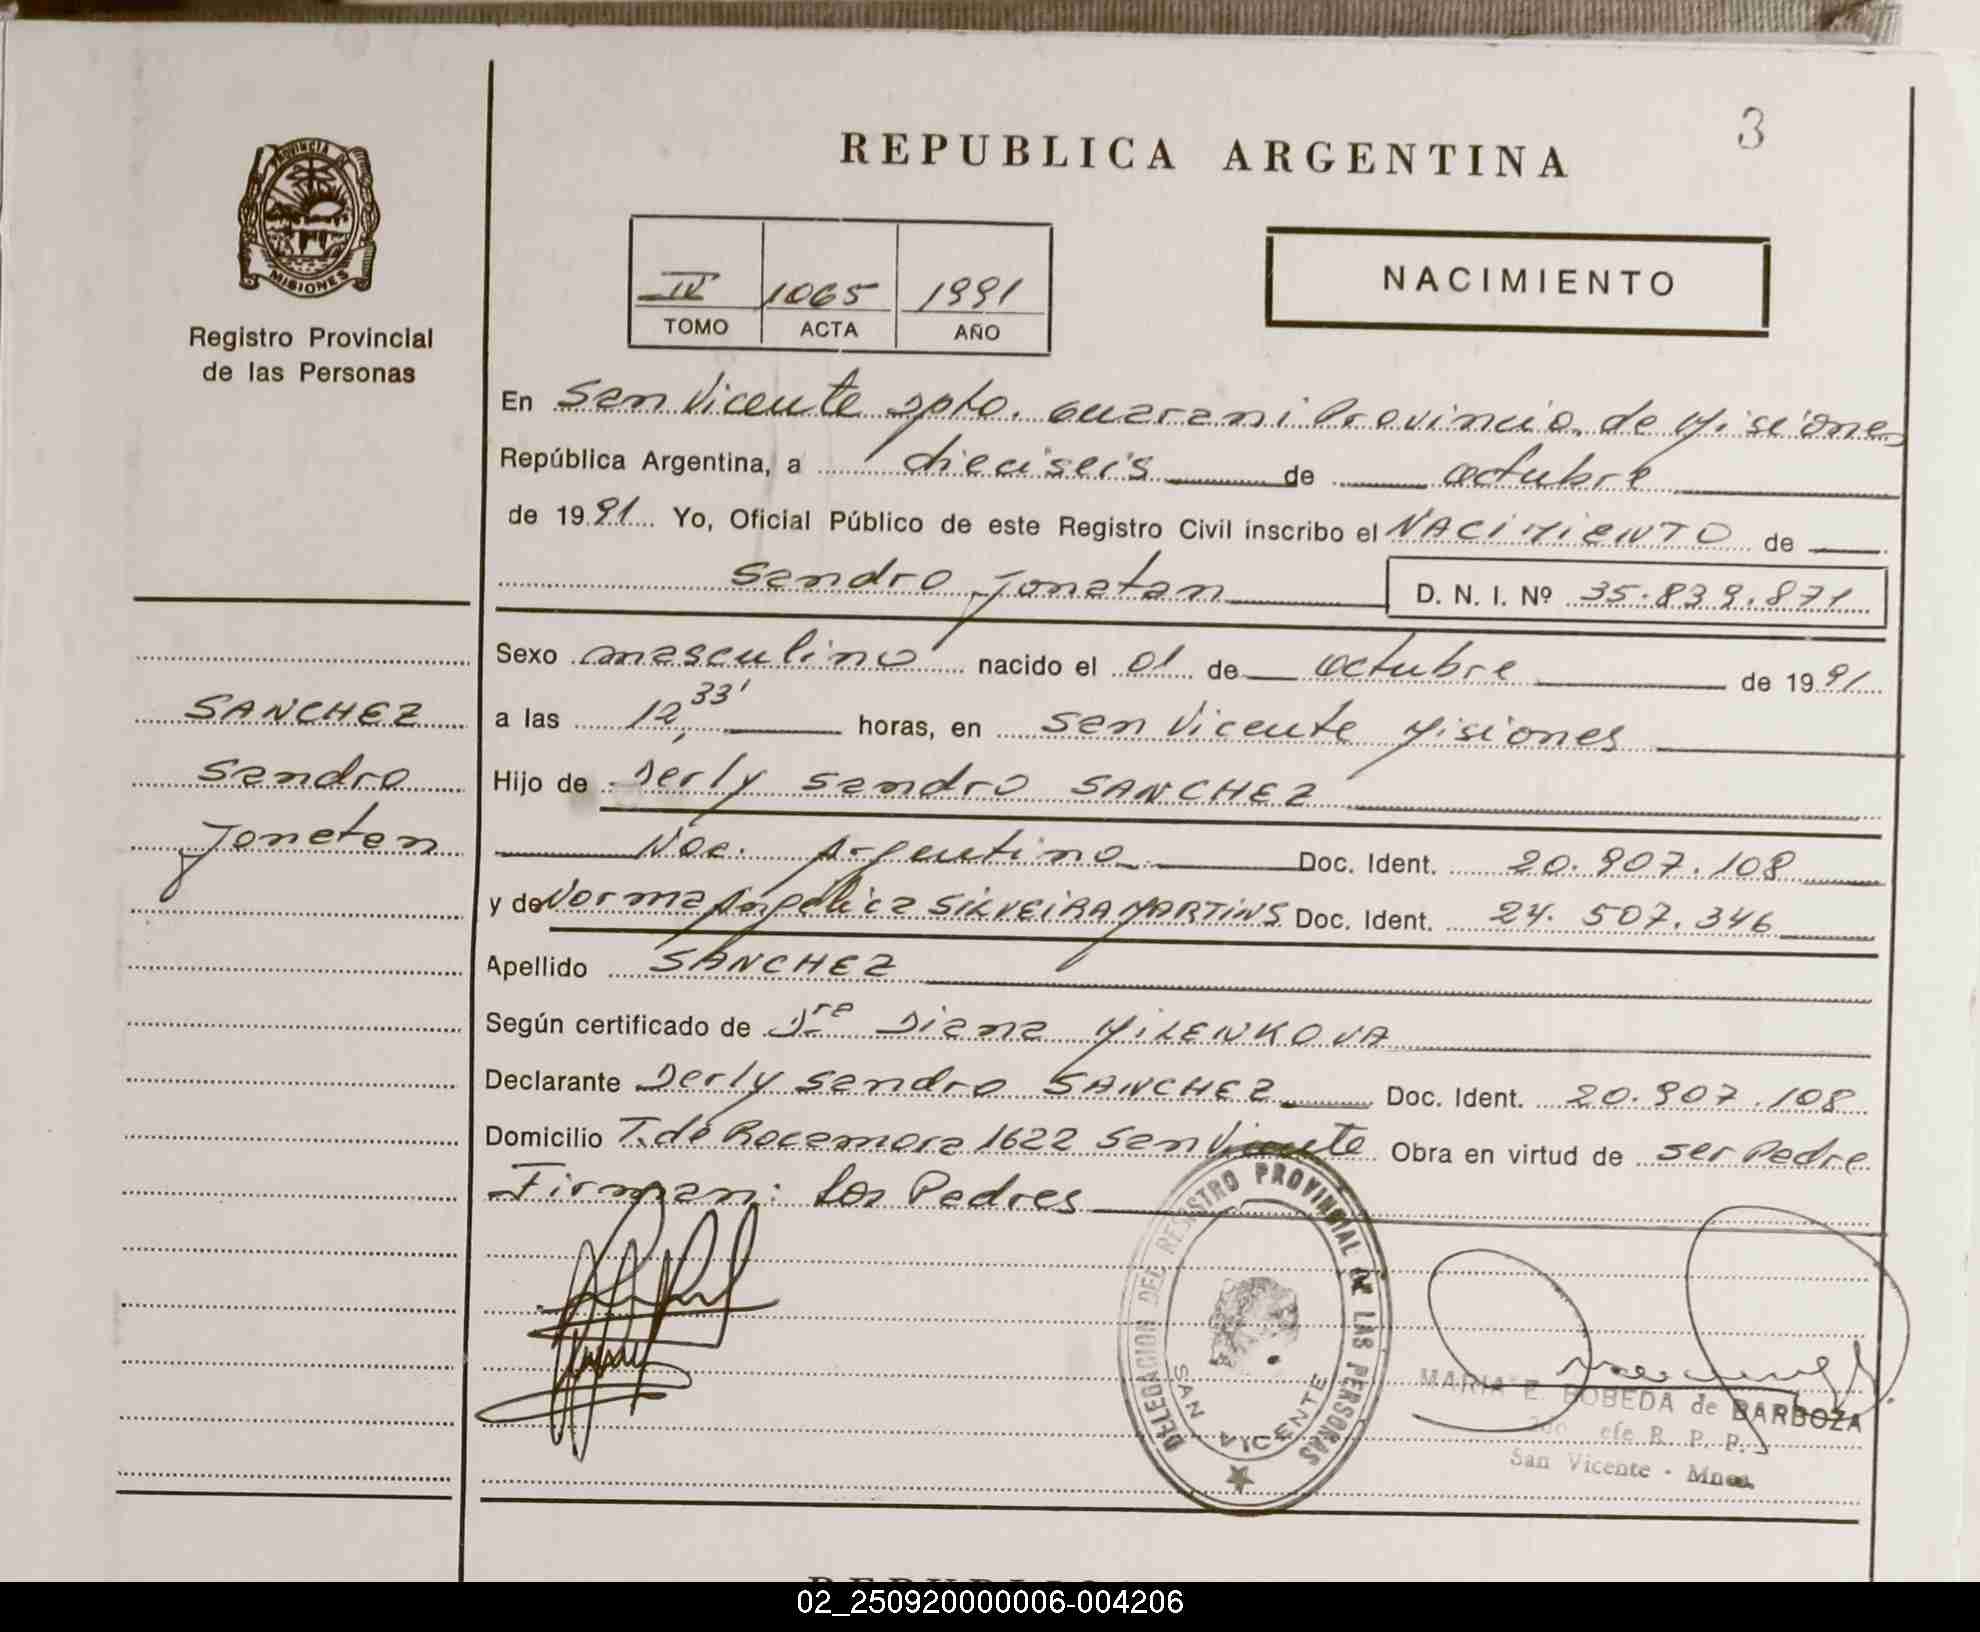 3
REPUBLICA ARGENTINA
PROVINCIA DE
MISIONES
Registro Provincial
de las Personas
IV 1065 1991
TOMO ACTA AÑO
NACIMIENTO
En San Vicente Dpto. Guarani Provincia de Misiones
República Argentina, a dieciseis de octubre
de 1991 Yo, Oficial Público de este Registro Civil inscribo el NACIMIENTO de
Sandro Jonatan D. N. I. Nº 35.839.871
Sexo masculino nacido el 01 de octubre de 1991
a las 12,33' horas, en San Vicente Misiones
Hijo de Derly Sandro SANCHEZ
Nac. Argentino Doc. Ident. 20.907.108
y de Norma Angélica SILVEIRA MARTINS Doc. Ident. 24.507.346
Apellido SANCHEZ
Según certificado de Dra Diana MILENKOVA
Declarante Derly Sandro SANCHEZ Doc. Ident. 20.907.108
Domicilio T. de Rocamora 1622 San Vicente Obra en virtud de ser Padre
Firman: los Padres
SANCHEZ
Sandro
Jonatan
DELEGACION DEL REGISTRO PROVINCIAL DE LAS PERSONAS
SAN VICENTE
MARIA E. BOBEDA de BARBOZA
efe R. P. P.
San Vicente - Mnes.
02_250920000006-004206